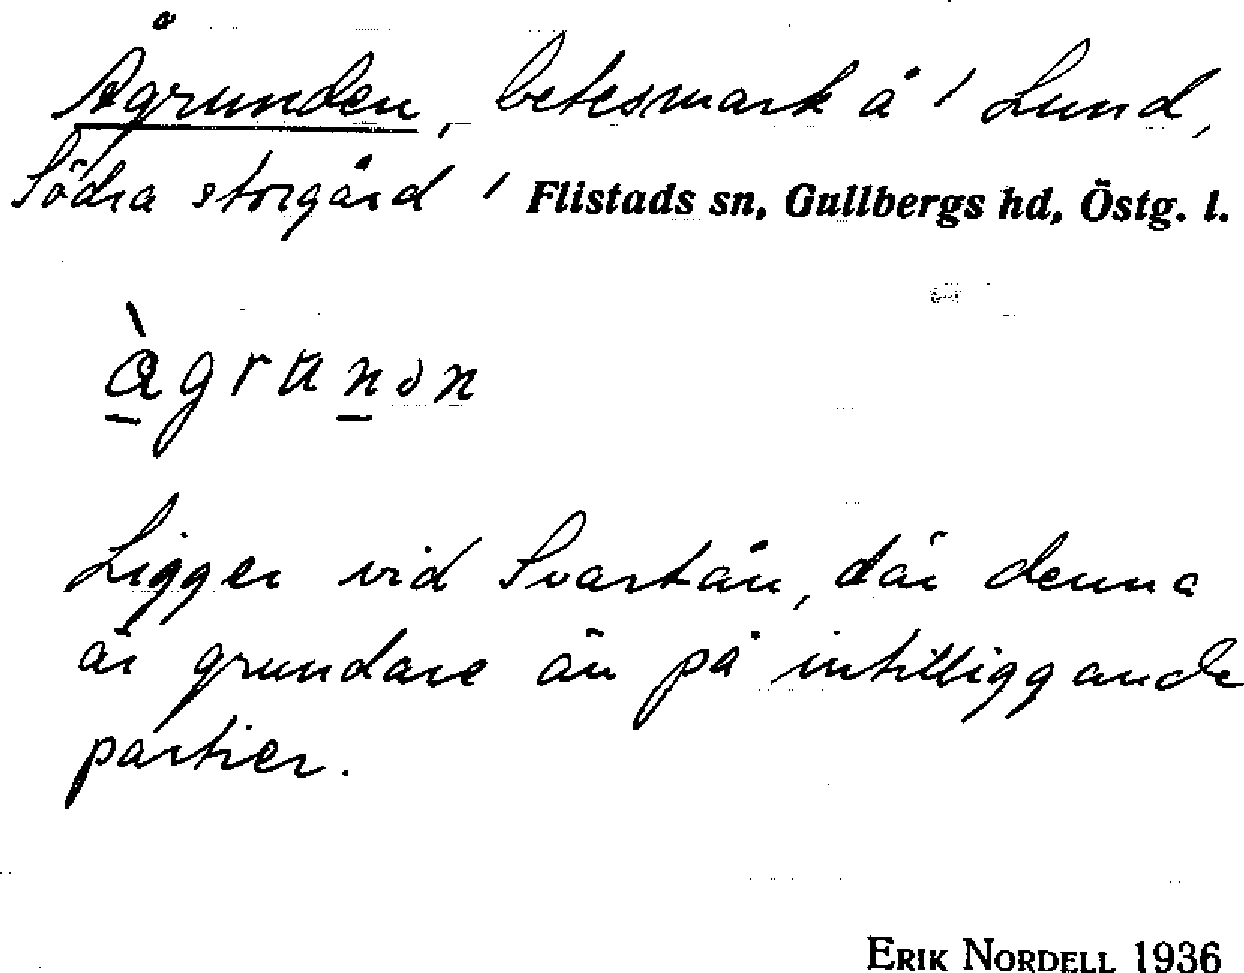 Ågrunden, betesmark å ' Lund,
Södra storgård ' Flistads sn, Gullbergs hd, Östg. l.
àgrunən
Ligger vid Svartån, där denna
är grundare än på intilliggande
partier.
ERIK NORDELL 1936